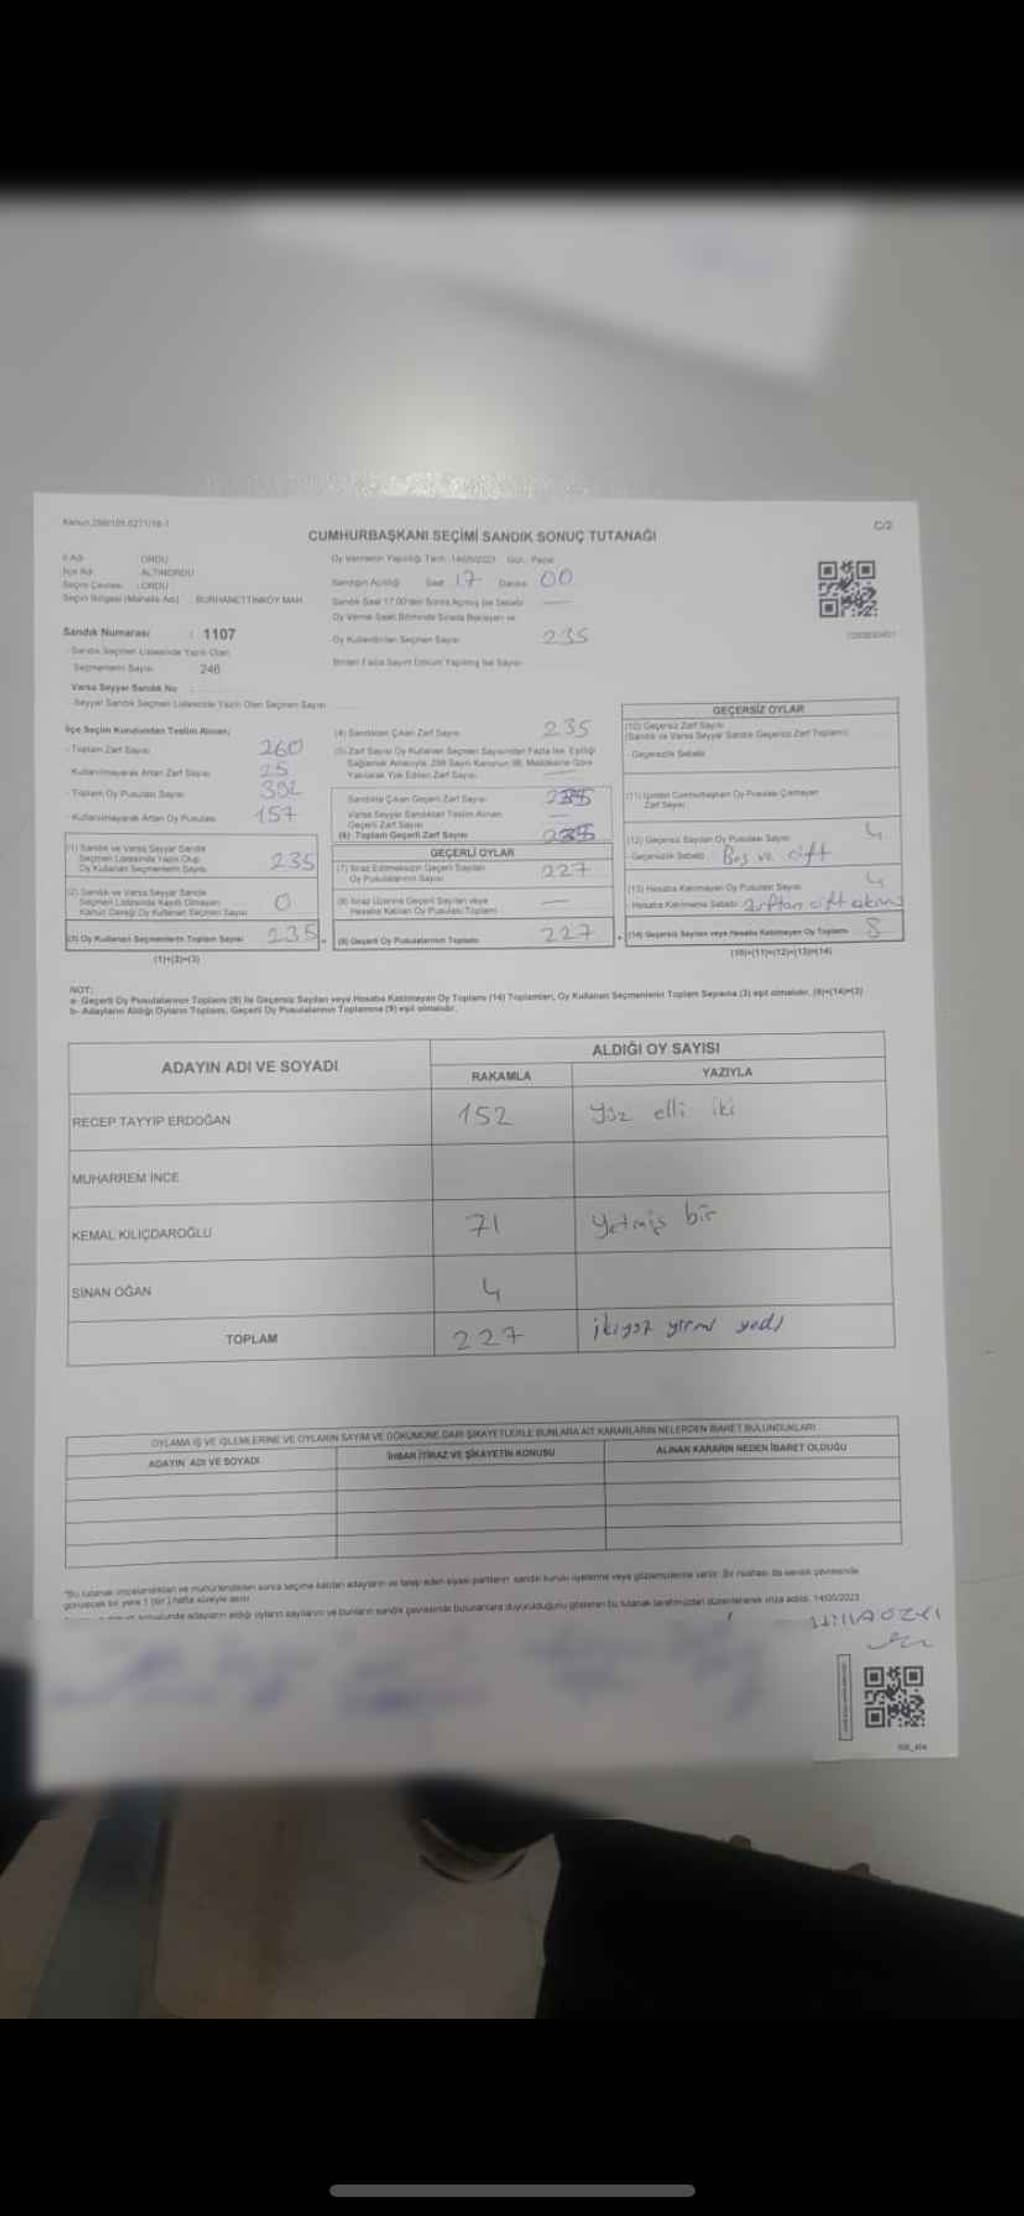 Kanun:298/105,6271/18-1
C/2
CUMHURBAŞKANI SEÇİMİ SANDIK SONUÇ TUTANAĞI
İl Adı : ORDU
İlçe Adı : ALTINORDU
Seçim Çevresi : ORDU
Seçim Bölgesi (Mahalle Adı) : BURHANETTİNKÖY MAH.
Oy Vermenin Yapıldığı Tarih: 14/05/2023 Gün: Pazar
Sandığın Açıldığı Saat 17 Dakika 00
Sandık Saat 17:00'den Sonra Açılmış İse Sebebi
Oy Verme Saati Bitiminde Sırada Bekleyen ve
Oy Kullandırılan Seçmen Sayısı 235
Birden Fazla Sayım Döküm Yapılmış İse Sayısı
Sandık Numarası : 1107
Sandık Seçmen Listesinde Yazılı Olan
Seçmenlerin Sayısı 246
Varsa Seyyar Sandık No :
Seyyar Sandık Seçmen Listesinde Yazılı Olan Seçmen Sayısı
İlçe Seçim Kurulundan Teslim Alınan;
- Toplam Zarf Sayısı 260
- Kullanılmayarak Artan Zarf Sayısı 25
- Toplam Oy Pusulası Sayısı 392
- Kullanılmayarak Artan Oy Pusulası 157
(1) Sandık ve Varsa Seyyar Sandık
Seçmen Listesinde Yazılı Olup
Oy Kullanan Seçmenlerin Sayısı 235
(2) Sandık ve Varsa Seyyar Sandık
Seçmen Listesinde Kayıtlı Olmayan
Kanun Gereği Oy Kullanan Seçmen Sayısı 0
(3) Oy Kullanan Seçmenlerin Toplam Sayısı 235
(1)+(2)=(3)
(4) Sandıktan Çıkan Zarf Sayısı 235
(5) Zarf Sayısı Oy Kullanan Seçmen Sayısından Fazla İse, Eşitliği
Sağlamak Amacıyla, 298 Sayılı Kanunun 98. Maddesine Göre
Yakılarak Yok Edilen Zarf Sayısı
Sandıkta Çıkan Geçerli Zarf Sayısı 235
Varsa Seyyar Sandıktan Teslim Alınan
Geçerli Zarf Sayısı
(6) Toplam Geçerli Zarf Sayısı 235
GEÇERLİ OYLAR
(7) İtiraz Edilmeksizin Geçerli Sayılan
Oy Pusulalarının Sayısı 227
(8) İtiraz Üzerine Geçerli Sayılan veya
Hesaba Katılan Oy Pusulası Toplamı
(9) Geçerli Oy Pusulalarının Toplamı 227
GEÇERSİZ OYLAR
(10) Geçersiz Zarf Sayısı
(Sandık ve Varsa Seyyar Sandık Geçersiz Zarf Toplamı)
- Geçersizlik Sebebi
(11) İçinden Cumhurbaşkanı Oy Pusulası Çıkmayan
Zarf Sayısı
(12) Geçersiz Sayılan Oy Pusulası Sayısı 4
- Geçersizlik Sebebi Boş ve çift
(13) Hesaba Katılmayan Oy Pusulası Sayısı 4
- Hesaba Katılmama Sebebi zarftan çift çıkması
(14) Geçersiz Sayılan veya Hesaba Katılmayan Oy Toplamı 8
(10)+(11)+(12)+(13)=(14)
NOT:
a- Geçerli Oy Pusulalarının Toplamı (9) ile Geçersiz Sayılan veya Hesaba Katılmayan Oy Toplamı (14) Toplamları, Oy Kullanan Seçmenlerin Toplam Sayısına (3) eşit olmalıdır. (9)+(14)=(3)
b- Adayların Aldığı Oyların Toplamı, Geçerli Oy Pusulalarının Toplamına (9) eşit olmalıdır.
ADAYIN ADI VE SOYADI
ALDIĞI OY SAYISI
RAKAMLA YAZIYLA
RECEP TAYYİP ERDOĞAN 152 yüz elli iki
MUHARREM İNCE
KEMAL KILIÇDAROĞLU 71 yetmiş bir
SİNAN OĞAN 4
TOPLAM 227 ikiyüz yirmi yedi
OYLAMA İŞ VE İŞLEMLERİNE VE OYLARIN SAYIM VE DÖKÜMÜNE DAİR ŞİKAYETLERLE BUNLARA AİT KARARLARIN NELERDEN İBARET BULUNDUKLARI
ADAYIN ADI VE SOYADI
İHBAR İTİRAZ VE ŞİKAYETİN KONUSU
ALINAN KARARIN NEDEN İBARET OLDUĞU
"Bu tutanak imzalandıktan ve mühürlendikten sonra seçime katılan adayların ve talep eden siyasi partilerin sandık kurulu üyelerine veya gözlemcilerine verilir. Bir nüshası da sandık çevresinde
görülecek bir yere 1 (bir) hafta süreyle asılır.
adayların aldığı oyların sayılarını ve bunların sandık çevresinde bulunanlara duyurulduğunu gösteren bu tutanak tarafımızdan düzenlenerek imza edildi. 14/05/2023